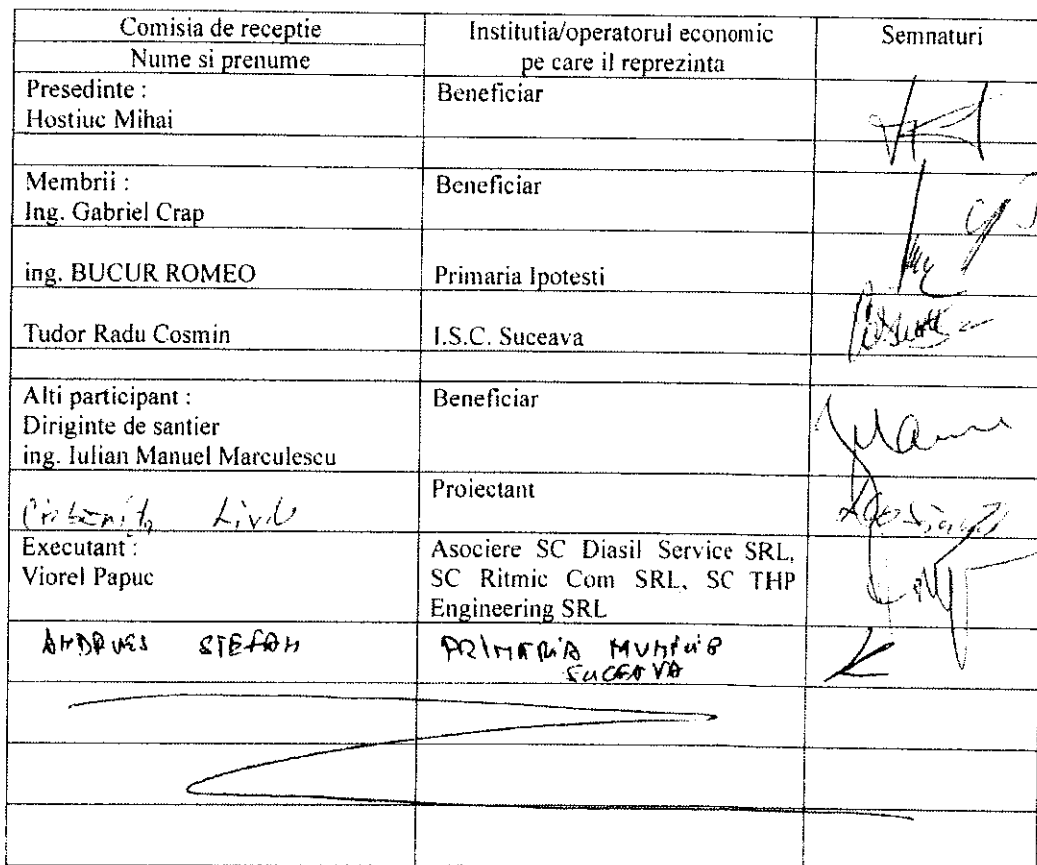 Comisia de receptie
Nume si prenume
Institutia/operatorul economic
pe care il reprezinta
Semnaturi
Presedinte :
Hostiuc Mihai
Beneficiar
Membrii :
Ing. Gabriel Crap
Beneficiar
ing. BUCUR ROMEO
Primaria Ipotesti
Tudor Radu Cosmin
I.S.C. Suceava
Alti participant :
Diriginte de santier
ing. Iulian Manuel Marculescu
Beneficiar
Proiectant
Executant :
Viorel Papuc
Asociere SC Diasil Service SRL,
SC Ritmic Com SRL, SC THP
Engineering SRL
STEFAN
PRIMARIA
SUCEAVA